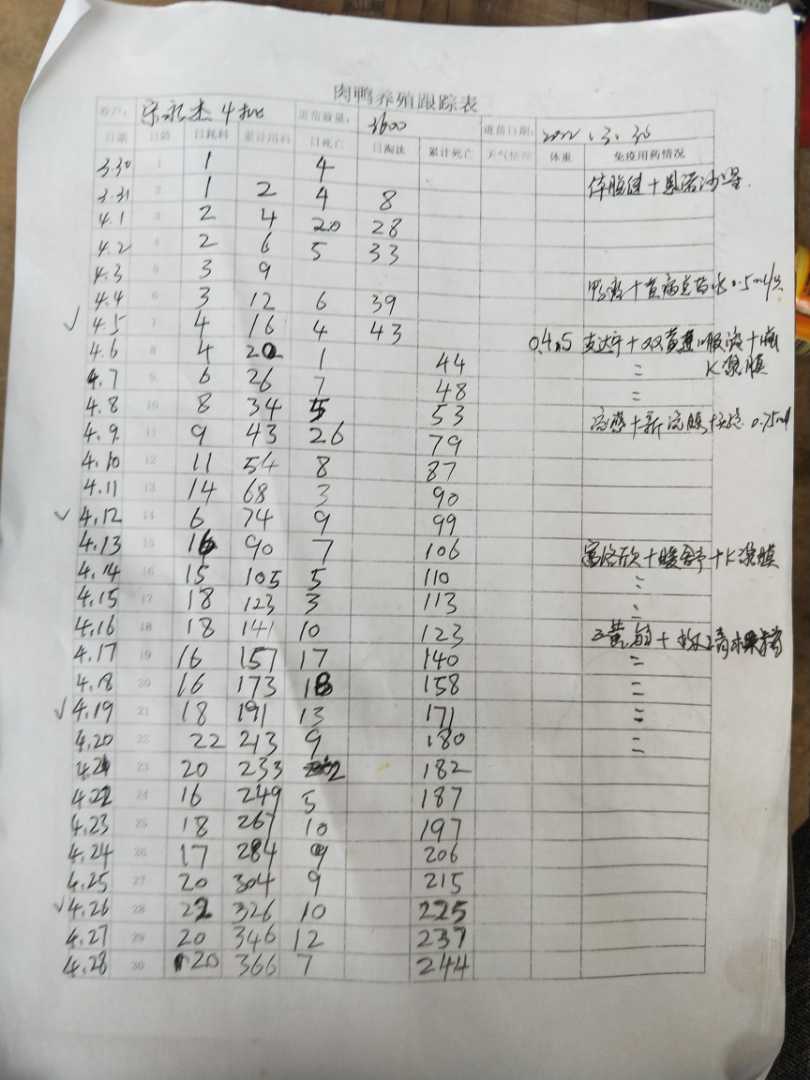 肉鸭养殖跟踪表
客户: 宋永杰4批 进苗数量: 3600 进苗日期: 2022.3.30
日期 日龄 日耗料 累计用料 日死亡 日淘汰 累计死亡 天气情况 体重 免疫用药情况
3.30 1 1 4
3.31 2 1 2 4 8
4.1 3 2 4 20 28
4.2 4 2 6 5 33
4.3 5 3 9
4.4 6 3 12 6 39
✓ 4.5 7 4 16 4 43
4.6 8 4 20 1 44
4.7 9 6 26 7 48 =
4.8 10 8 34 5 53 =
4.9 11 9 43 26 79
4.10 12 11 54 8 87
4.11 13 14 68 3 90
✓ 4.12 14 6 74 9 99
4.13 15 16 90 7 106
4.14 16 15 105 5 110 =
4.15 17 18 123 3 113 =
4.16 18 18 141 10 123
4.17 19 16 157 17 140 =
4.18 20 16 173 18 158 =
✓ 4.19 21 18 191 13 171 =
4.20 22 22 213 9 180 =
4.21 23 20 233 2 182
4.22 24 16 249 5 187
4.23 25 18 267 10 197
4.24 26 17 284 9 206
4.25 27 20 304 9 215
✓ 4.26 28 22 326 10 225
4.27 29 20 346 12 237
4.28 30 20 366 7 244